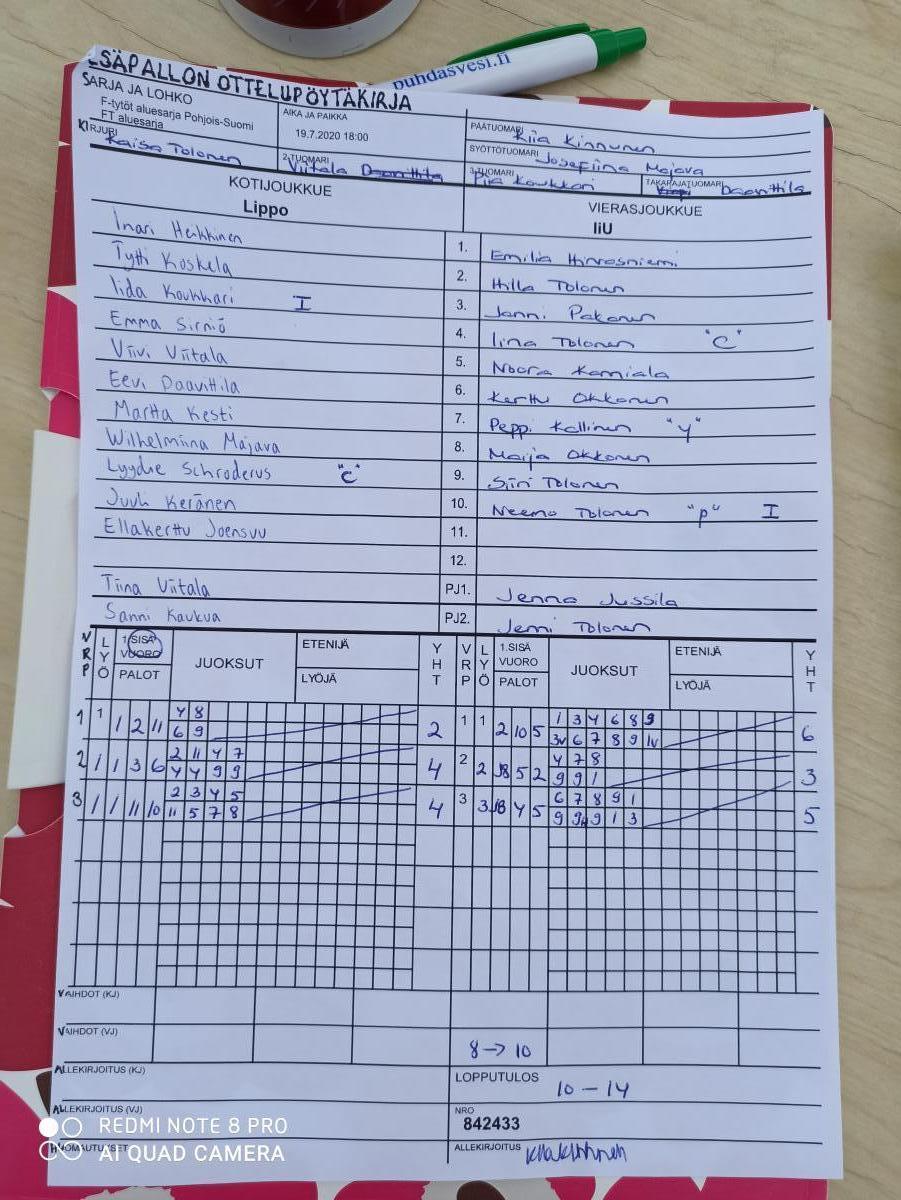 puhdasvesi.fi
SÄPALLON OTTELUPÖYTÄKIRJA
SARJA JA LOHKO
F-tytöt aluesarja Pohjois-Suomi
FT aluesarja
AIKA JA PAIKKA
19.7.2020 18:00
PÄÄTUOMARI Kiia Kinnunen
SYÖTTÖTUOMARI Josefiina Majava
KIRJURI Kaisa Tolonen
2-TUOMARI Viitala
3-TUOMARI Pia Koukkari
TAKARAJATUOMARI Daavittila
KOTIJOUKKUE
Lippo
VIERASJOUKKUE
IiU
Inari Heikkinen 1. Emilia Hinrosniemi
Tytti Koskela 2. Hilla Tolonen
Iida Koukkari I 3. Janni Pakonen
Emma Sirniö 4. Iina Tolonen "C"
Viivi Viitala 5. Noora Kamiala
Eevi Daavittila 6. Kerttu Okkonen
Martta Kesti 7. Peppi Kallinen "y"
Wilhelmiina Majava 8. Maija Okkonen
Lyydie Schroderus "C" 9. Siiri Tolonen
Juuli Keränen 10. Neema Tolonen "p" I
Ellakerttu Joensuu 11.
12.
Tiina Viitala PJ1. Jenna Jussila
Sanni Kaukua PJ2. Jemi Tolonen
VRP LYÖ 1.SISÄ VUORO PALOT JUOKSUT ETENIJÄ LYÖJÄ YHT VRP LYÖ 1.SISÄ VUORO PALOT JUOKSUT ETENIJÄ LYÖJÄ YHT
1 1 1 2 11 4 8 2 1 1 2 10 5 1 3 4 6 8 9 6
6 9 3v 6 7 8 9 1v
2 1 1 3 6 2 11 4 7 4 2 2 8 5 2 4 7 8 3
4 4 9 9 9 9 1
3 1 1 11 10 2 3 4 5 4 3 3 8 4 5 6 7 8 9 1 5
11 5 7 8 9 9 9 1 3
VAIHDOT (KJ)
VAIHDOT (VJ)
8 → 10
ALLEKIRJOITUS (KJ)
LOPPUTULOS 10 – 14
ALLEKIRJOITUS (VJ)
NRO
842433
HUOMAUTUKSET
ALLEKIRJOITUS
REDMI NOTE 8 PRO
AI QUAD CAMERA